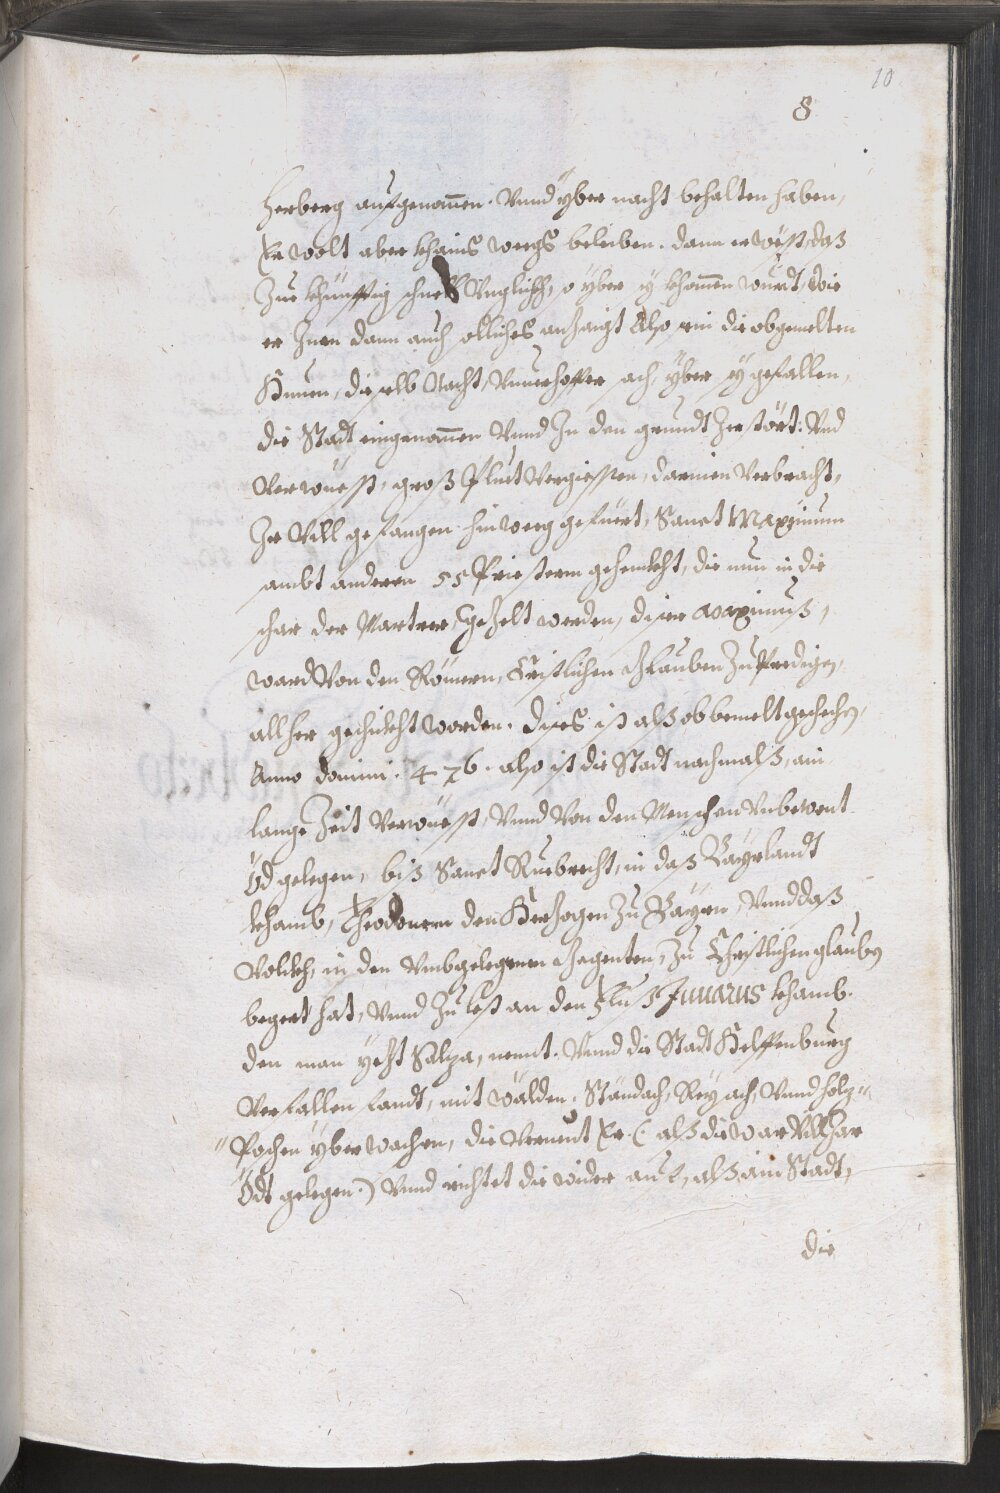 10
8
Herberg aufgenomen. Vnnd yber nacht behalten haben,
Er wolt aber khains weegs beleiben. dann er wüst, daß
Zue khünfftig schnell Vnglükh, so yber sy khomen wurdt, wie
er Jnen dann auch solliches anzaigt Also sein die obgemelten
Hunen, dieselb Nacht, Vnuerhoffter sach, yber sy gefallen,
die Stadt eingenomen Vnnd Jn den grundt Zerstört: Vnd
Verwüesst, groß Pluet Vergiessen, darinen Verbracht,
Jr Vill gefangen hinweeg gefüert, Sanct Maximum
sambt anderen 55 Priestern gehenckht, die nun in die
schar der Martrer, Gezelt werden, diser Maximuß,
ward Von den Römern, Cristlichen Glauben Zu Predigen,
allher geschickht worden. dises ist alß obbemelt geschechen,
Anno domini. 476. also ist die Stadt nachmalß, ain
lange Zeit Verwüesst, Vnnd Von den Menschen Vnbewont
Öd gelegen, biß Sanct Ruebrecht, in daß Bayrlandt
khamb, Theodonem den Herzogen Zu Bayrn, Vnnd daß
Volckh, in den Vmbgelegenen Gegenten, Zu Christlichen glauben
bekert hat, Vnnd Zu lest an den Fluß Juuarus khamb.
den man yezt Salza, nennt. Vnnd die Stadt Helffenburg
Verfallen fandt, mit wälden, Staudach, Vnnd holz
Pochen yberwachsen, die Verneut Er (: alß die war Vill Jar
Ödt gelegen:) Vnnd richtet die wider auf, alß ain Stadt,
die